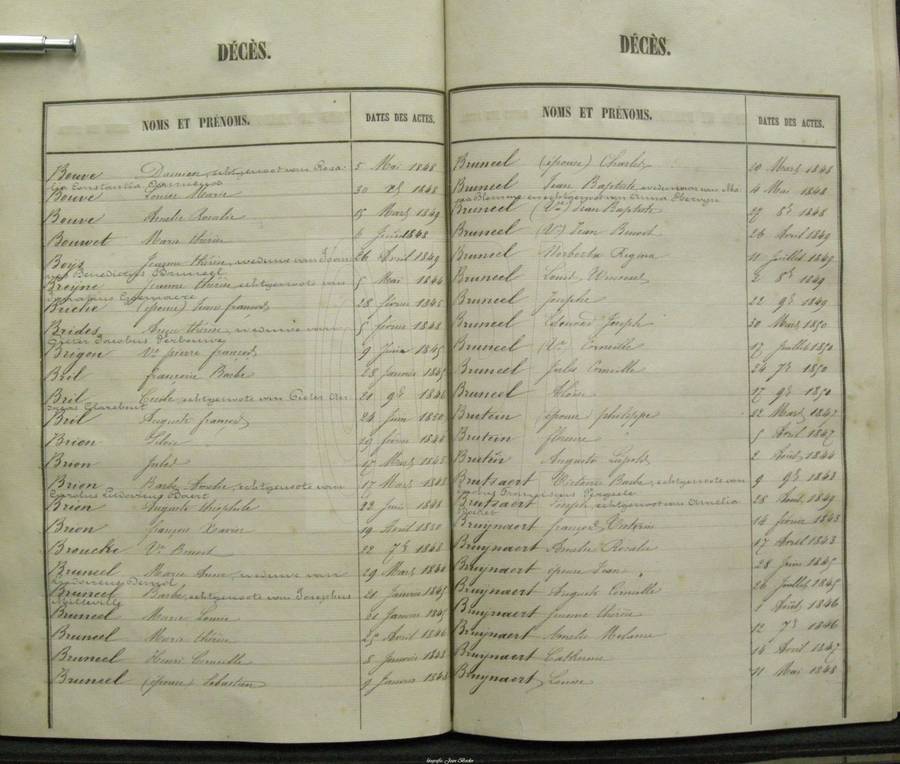 DÉCÈS.
NOMS ET PRÉNOMS. DATES DES ACTES.
Bouve Damien, echtgenoot van Rosa- 5 Mai 1848
lia Constantia
Bouve Louise Marie 30 1848
Bouve Amelie Rosalie 15 Mars 1849
Bouwet Marie thérèse 6 1848
Boys Jeanne thérèse, weduwe van Joan- 26 Avril 1849
nes Benedictus Bruneel
Breyne Jeanne thérèse echtgenoote van 5 Mai 1846
Ignatius
Briche (épouse) Jean françois 28 février 1845
Brides Anne thérèse, weduwe van 5 février 1848
Pieter Jacobus
Brigou Ve pierre françois 9 Juin 1845
Bril françoise Barbe 28 Janvier 1845
Bril echtgenoote van Pieter 21 9bre 1846
Bril Auguste françois 24 Juin 1850
Brion 29 février 1846
Brion Jules 17 Mars 1845
Brion Barbe Amelie, echtgenoote van 17 Mars 1848
Carolus Ludovicus Baert
Brion Auguste théophile 22 Juin 1848
Brion françois Xavier 19 Avril 1850
Broucke Ve Benoit 22 7bre 1848
Bruneel Marie Anne, weduwe van 29 Mars 1844
Ludovicus
Bruneel Barbe, echtgenoote van Josephus 21 Janvier 1845
Bruneel Marie Louise 20 Janvier 1845
Bruneel Marie thérèse 25 Avril 1846
Bruneel Henri Corneille 8 Janvier 1848
Bruneel (épouse) Sebastien 9 Janvier 1848
DÉCÈS.
NOMS ET PRÉNOMS. DATES DES ACTES.
Bruneel (épouse) Charles 10 Mars 1848
Bruneel Jean Baptiste, weduwnaar van Ma- 4 Mai 1848
en echtgenoot van Anna
Bruneel (Ve) Jean Baptiste 27 8bre 1848
Bruneel (Ve) Jean Benoit 26 Avril 1849
Bruneel Norberta Regina 11 Juillet 1849
Bruneel Louis 2 8bre 1849
Bruneel Josephe 22 9bre 1849
Bruneel Edouard Joseph 30 Mars 1850
Bruneel (Ve) Corneille 17 Juillet 1850
Bruneel Jules Corneille 24 7bre 1850
Bruneel Aloïse 27 9bre 1850
Brutein épouse philippe 22 Mars 1847
Brutein 5 Avril 1847
Brutein Auguste Léopold 2 Août 1844
Brutsaert Victoire Barbe, echtgenoote van 9 9bre 1843
Franciscus
Brutsaert Joseph, echtgenoot van Amelia 28 Août 1849
Bruynaert françois 14 février 1843
Bruynaert Amelie Rosalie 17 Avril 1843
Bruynaert épouse Jean 28 Juin 1845
Bruynaert Auguste Corneille 26 Juillet 1845
Bruynaert Jeanne thérèse Août 1846
Bruynaert Amelie Melanie 12 7bre 1846
Bruynaert Catherine 14 Avril 1847
Bruynaert Louise 11 Mai 1848